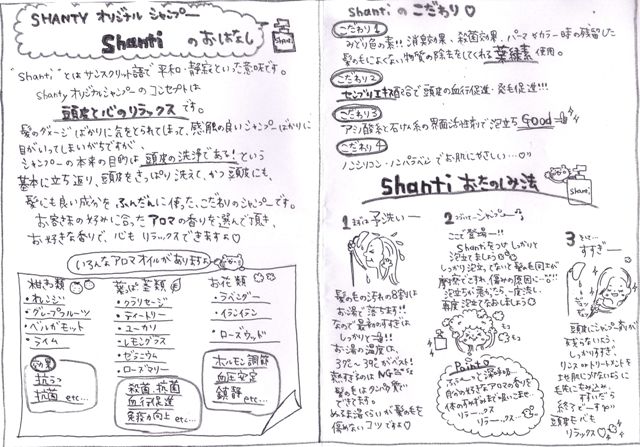 SHANTY オリジナル シャンプー
Shanti のおはなし
Shanti
"Shanti"とはサンスクリット語で平和・静寂といった意味です。
Shantyオリジナルシャンプーのコンセプトは
頭皮と心のリラックスです。
髪のダメージばかりに気をとられてしまって、感触の良いシャンプーばかりに
目がいってしまいがちですが、
シャンプーの本来の目的は頭皮の洗浄である!という
基本に立ち返り、頭皮をさっぱり洗えて、かつ頭皮にも、
髪にも良い成分をふんだんに使った、こだわりのシャンプーです。
お客さまの好みに合ったアロマの香りを選んで頂き、
お好きな香りで、心もリラックスできますよ♡
いろんなアロマオイルがありますよ
柑橘類
・オレンジ
・グレープフルーツ
・ベルガモット
・ライム
効果
抗うつ
抗菌 etc...
葉っぱ類
・クラリセージ
・ティートリー
・ユーカリ
・レモングラス
・ゼラニウム
・ローズマリー
殺菌、抗菌
血行促進
免疫力向上 etc...
お花類
・ラベンダー
・イランイラン
・ローズウッド
ホルモン調節
血圧安定
鎮静 etc...
Shanti の こだわり♡
こだわり1
みどり色の素!! 消臭効果、殺菌効果、パーマやカラー時の残留した
髪の毛によくない物質の除去をしてくれる葉緑素使用。
こだわり2
センブリエキス配合で頭皮の血行促進・発毛促進!!!
こだわり3
アミノ酸系と石けん系の界面活性剤で泡立ちGood
こだわり4
ノンシリコン・ノンパラベンでお肌にやさしい…♡
Shanti おたのしみ法
Shanti
1 まずは予洗いー
髪の毛の汚れの8割は
お湯で落ちます!!
なので最初のすすぎは
しっかりと!!
お湯の温度は、
37℃〜39℃がベスト!
熱すぎるのはNG
髪の毛はタンパク質…
ですので
ぬるま湯くらいが髪の毛を
傷めないコツですよ♡
2 つづいてシャンプー
ここで登場ー!!
Shantiをつけしっかりと
泡立てましょう
しっかり泡立てないと髪の毛同士が
摩擦でこすれ、傷みの原因に…!!!
泡立ちが悪かったら一度流し
再度泡立てなおしましょう
Point
すーーっと深呼吸…
自分の好きなアロマの香りを
体のすみずみまで吸いこませ…
リラーックス
リラーックス…
3 そして…
すすぎー
頭皮にシャンプー剤が
残らないよう、
しっかりすすぎ、
リンス or トリートメントを
地肌につかないように
毛先にもみ込み、
すすいだら
終了でーすっ
頭皮も心も
リラックス♡